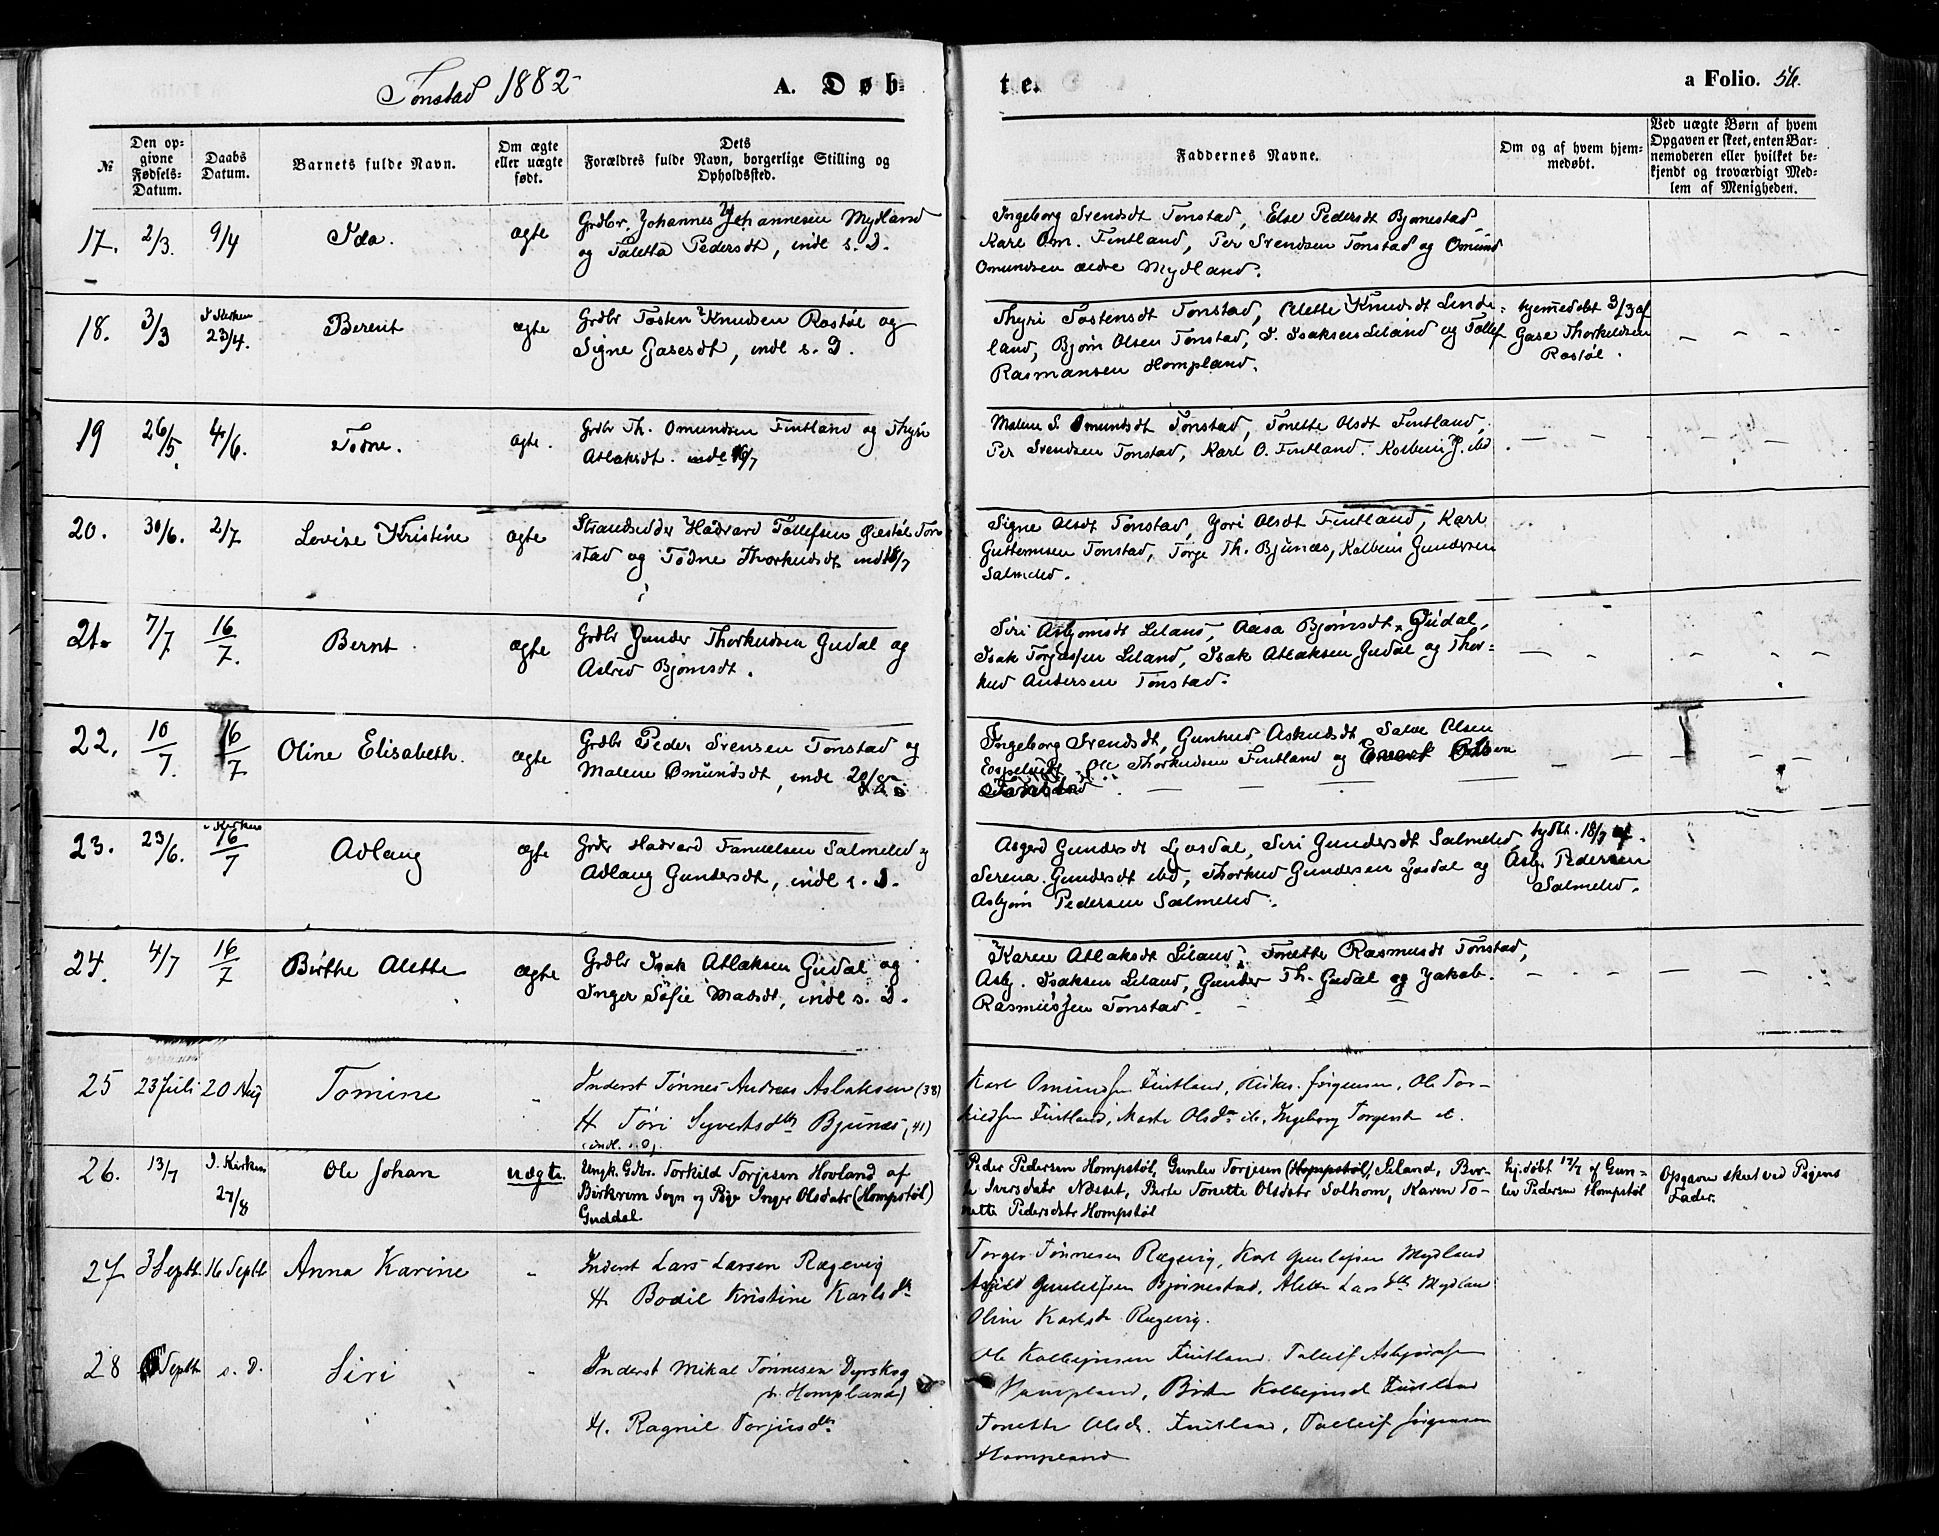 Tonstad 1882
A. Døb-
te.
a Folio. 56.
№
Den op-
givne
Fødsels-
Datum.
Daabs
Datum.
Barnets fulde Navn.
Om ægte
eller uægte
født.
Dets
Forældres fulde Navn, borgerlige Stilling og
Opholdssted.
Faddernes Navne.
Om og af hvem hjem-
medøbt.
Ved uægte Børn af hvem
Opgaven er skeet, enten Bar-
nemoderen eller hvilket be-
kjendt og troværdigt Med-
lem af Menigheden.
17. 2/3. 9/4 Ida. ægte
Grdbr. Johannes Johannesen Mydland
og Taletta Pedersdt, indl s. D.
Ingeborg Svendsdt Tonstad, Else Pedersdt Bjønestad,
Karl Om. Fintland, Per Svendsen Tonstad og Omund
Omundsen ældre Mydland.
18. 3/3 I Kirken
23/4. Berent ægte
Grdbr Tosten Knudsen Rostøl og
Signe Gasesdt, indl s. D.
Thyri Tostensdt Tonstad, Alette Knudsdt Linde-
land, Bjørn Olsen Tonstad, I. Isaksen Liland og Tollef
Rasmunsen Hompland.
hjemmedøbt 3/3 af
Gase Thorkildsen
Rostøl.
19 26/5. 4/6. Todne. ægte.
Grdbr Th. Omundsen Fintland og Thyri
Atlaksdt. indl 16/7
Malene S. Omundsdt Tonstad, Tonette Olsdt Fintland,
Per Svendsen Tonstad, Karl O. Fintland. Kolbein J. ibd
20. 30/6. 2/7 Lovise Kristine ægte
Strandsidder Haavard Tollefsen Øiestøl Ton
stad og Todne Thorkildsdt indl 16/7
Signe Olsdt Tonstad, Gori Olsdt Fintland, Karl
Guttormsen Tonstad, Torge Th. Bjunæs, Kolbein Gundersen
Salmelid.
21. 7/7 16/7. Bernt ægte
Grdbr Gunder Thorkildsen Gudal og
Astrid Bjørnsdt.
Siri Asbjørnsdt Liland, Aasa Bjørnsdt Gudal,
Isak Torgesen Liland, Isak Atlaksen Gudal og Thor-
kild Andersen Tonstad.
22. 10/7. 16/7 Oline Elisabeth. ægte
Grdbr Peder Svensen Tonstad og
Malene Omundsdt, indl 20/8
Ingeborg Svendsdt, Gunhild Askildsdt Salve Olsen
Ole Thorkildsen Fintland og
23. 23/6. i Kirken
16/7 Adlaug ægte
Grdbr Haavard Fanuelsen Salmelid og
Adlaug Gundersdt, indl s. D.
Asgerd Gundersdt Josdal, Siri Gundersdt Salmelid,
Serena Gundersdt ibd, Thorkild Gundersen Josdal og
Asbjørn Pedersen Salmelid.
hjdbt. 18/7 af
Asbj. Pedersen
Salmelid.
24. 4/7 16/7 Birthe Alette ægte
Grdbr Isak Atlaksen Gudal og
Inger Sofie Madsdt, indl s. D.
Karen Atlaksdt Liland, Tonette Rasmusdt Tonstad,
Asbj. Isaksen Liland, Gunder Th. Gudal og Jakob
Rasmussen Tonstad.
25 23 Juli 20 Aug Tomine "
Inderst Tønnes Andreas Aslaksen (38)
H. Tøri Syvertsdtr Bjunæs (41)
(indl. s. D)
Karl Omundsen Fintland, Jørgensen, Ole Tor-
kildsen Fintland, Marte Olsdtr ib, Ingeborg Torgersdt ib.
26. 13/7 I. Kirken
27/8 Ole Johan uægte.
Ungk. Gdbr. Torkild Torjesen Hovland af
Birkrem Sogn og Pige Inger Olsdatr (Hompstøl)
Guddal
Peder Pedersen Hompstøl, Gunlev Torjesen (Hompstøl) Liland, Bir-
te Iversdatr Næset, Berte Tonette Olsdatr Solhom, Karen To-
nette Pedersdatr Hompstøl
hj. døbt 17/7 af Gun-
lev Pedersen Hompstøl
Opgaven skeet ved Pigens
Fader.
27 3 Septb 16 Septb Anna Karine "
Inderst Lars Larsen Rægevig
H. Bodil Kristine Karlsdt
Torger Tønnesen Rægevig, Karl Gunleifsen Mydland
Askild Gunleifsen Bjørnestad, Alette Larsdtr Mydland
Oline Karlsdtr Rægevig.
28 Septb s. D. Siri "
Inderst Mikal Tønnesen Dyrskog
(v. Hompland)
H. Ragnil Torjusdtr
Ole Kolbeinsen Fintland. Tolleif Asbjørnsen
Hompland, Birte Kolbeinsd Fintland
Tonette Olsdtr. Fintland, Tolleif Jørgensen
Hompland